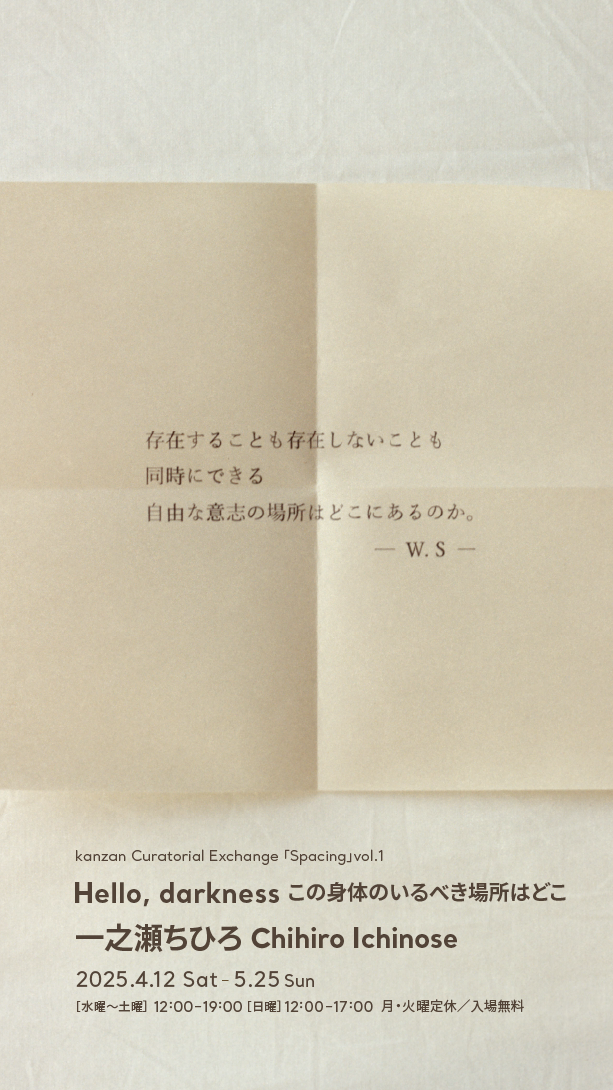 存在することも存在しないことも
同時にできる
自由な意志の場所はどこにあるのか。
— W. S —
kanzan Curatorial Exchange「Spacing」vol.1
Hello, darkness この身体のいるべき場所はどこ
一之瀬ちひろ Chihiro Ichinose
2025.4.12 Sat - 5.25 Sun
[水曜〜土曜] 12:00-19:00 [日曜] 12:00-17:00 月・火曜定休／入場無料